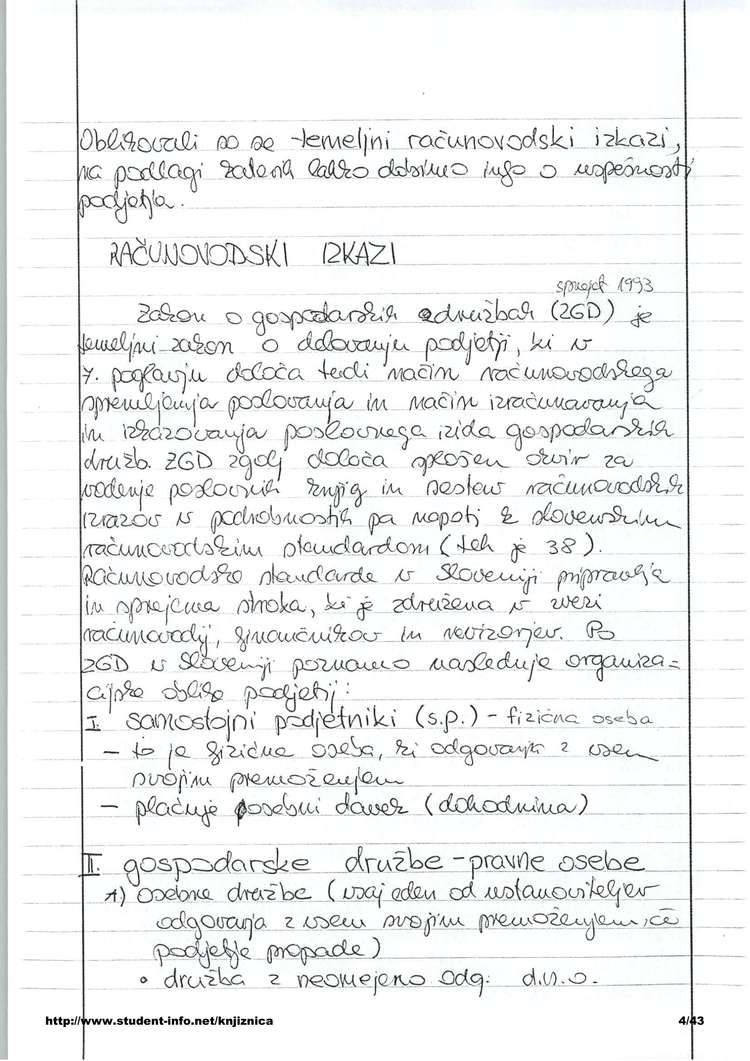 Oblikovali so se temeljni računovodski izkazi,
na podlagi katerih lahko dobimo info o uspešnosti
podjetja.
RAČUNOVODSKI IZKAZI
sprejet 1993
Zakon o gospodarskih družbah (ZGD) je
temeljni zakon o delovanju podjetij, ki v
7. poglavju določa tudi način računovodskega
spremljanja poslovanja in način izračunavanja
in izkazovanja poslovnega izida gospodarskih
družb. ZGD zgolj določa splošen okvir za
vodenje poslovnih knjig in sestav računovodskih
izkazov v podrobnostih pa napoti k slovenskim
računovodskim standardom (teh je 38).
Računovodske standarde v Sloveniji pripravlja
in sprejema stroka, ki je združena v zvezi
računovodij, finančnikov in revizorjev. Po
ZGD v Sloveniji poznamo naslednje organiza=
cijske oblike podjetij:
I. samostojni podjetniki (s.p.) - fizična oseba
- to je fizična oseba, ki odgovarja z vsem
svojim premoženjem
- plačuje posebni davek (dohodnina)
II. gospodarske družbe - pravne osebe
A) Osebne družbe (vsaj eden od ustanoviteljev
odgovarja z vsem svojim premoženjem, če
podjetje propade)
• družba z neomejeno odg. d.n.o.
http://www.student-info.net/knjiznica 4/43